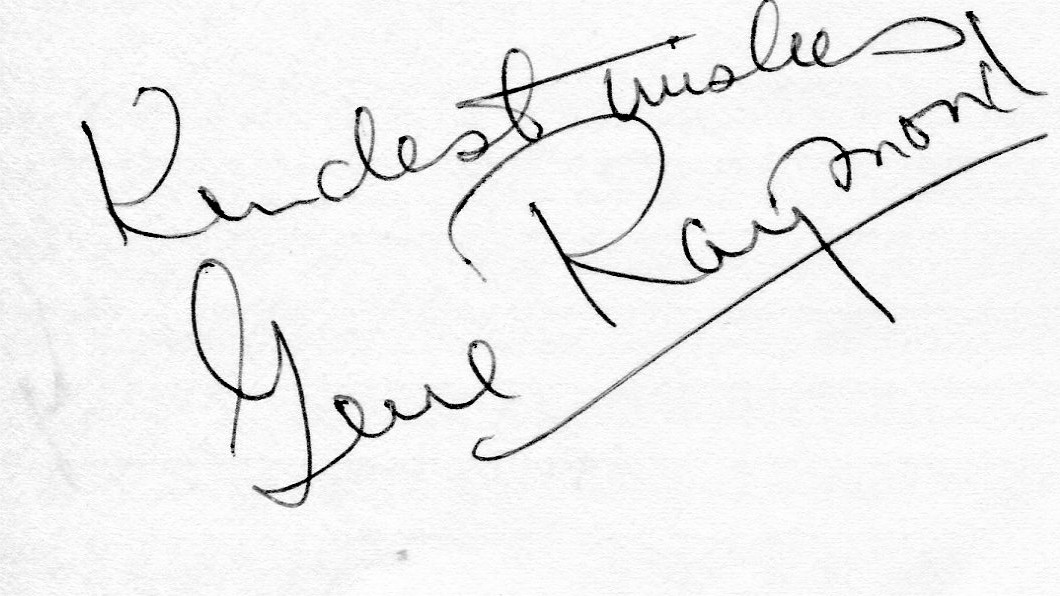 Kindest wishes
Gene Raymond